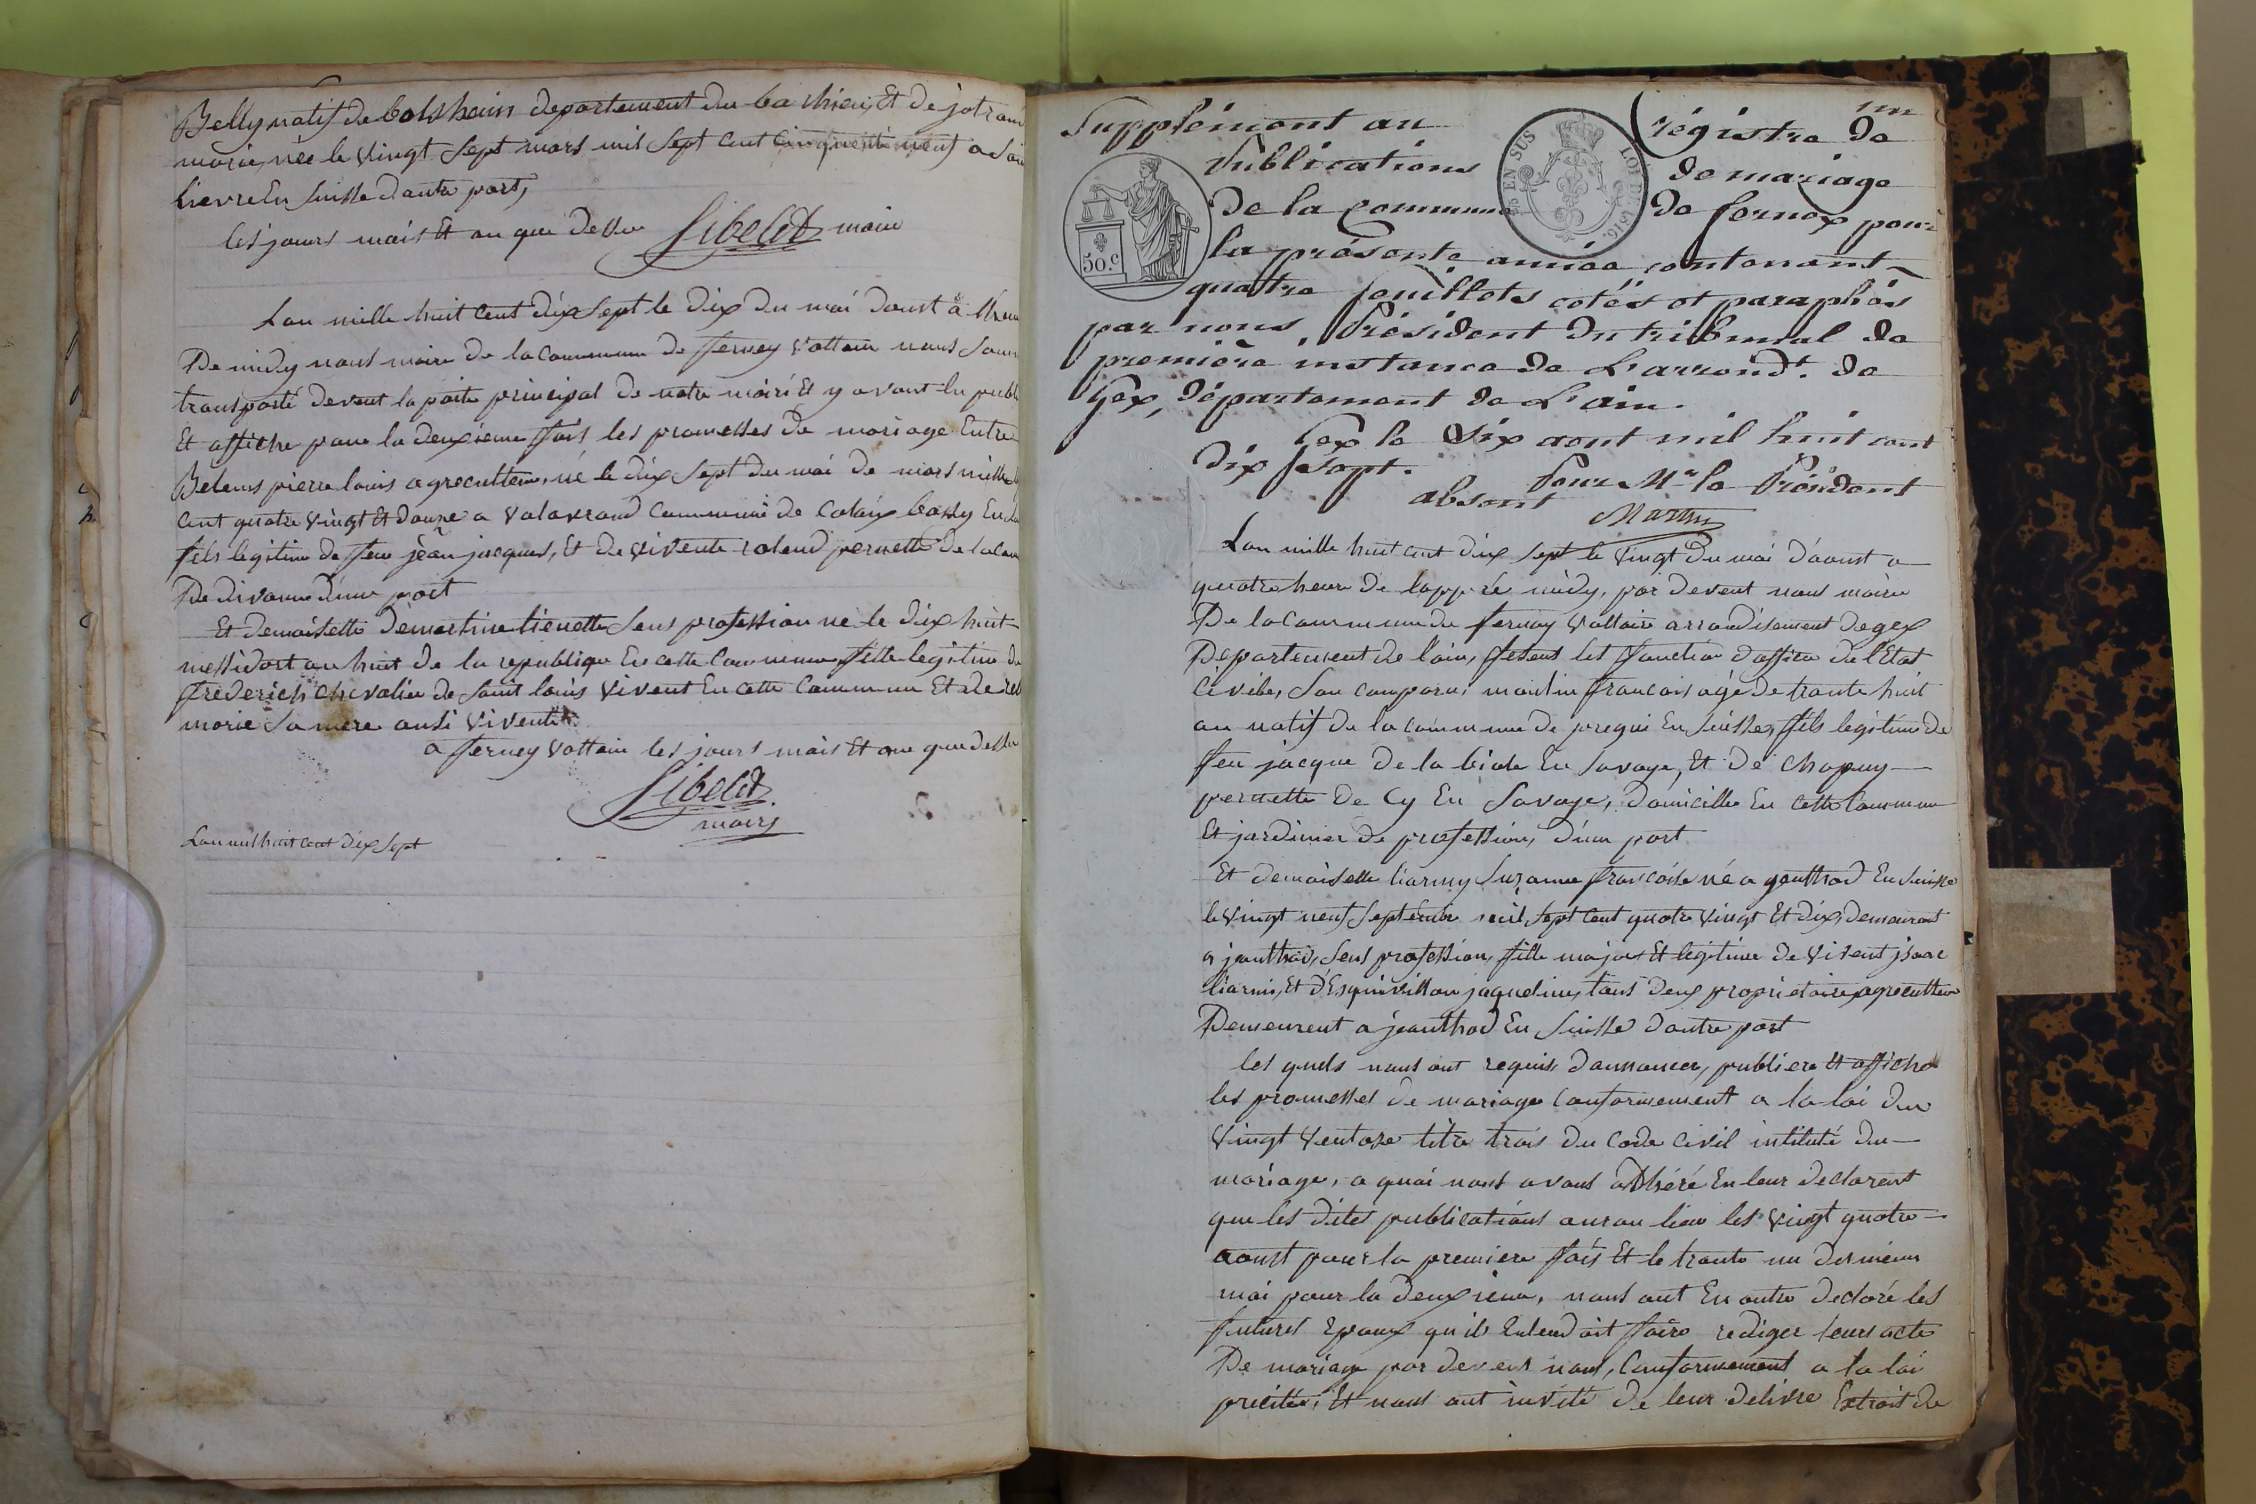 Belly natif de bolsheim departement du ba rhien, Et de jotran
marie, née le vingt sept mars mil sept cent cinquente neuf a
lievre En suisse d'autre part,
les jours mois Et an que desu Sibelet maire
Lan mille huit cent dix sept le dix du moi doust à
De midy nous maire de la commune de ferney voltair nous
transporté devent la porte principal de notre mairié Et y avont lu publ
Et affiche pour la deuxieme fois les promesses de mariage Entre
pierre louis agreculteur, né le dix sept du moi de mars mille
cent quatre vingt Et douze a valavrand commune de bossy En
fils legitime de feu jean jacques, Et de vivente roland pernette de la com
De divonne d'une part
Et demoiselle demartine lienette sens profession né le dix huit
messidort an huit de la republique En cette commune fille legitime de
frederich chevalier de saint louis vivent En cette commune Et de
marie sa mere ausi vivente
a ferney voltair les jours mois Et an que dessu
Sibelet
maire
Lan mil huit cent dix sept
un
Supplément au régistre de
Publications de mariage
de la Commune de fernex pour
la présente année contenant
quatre feuillets cotés et paraphés
par nous, Président du tribunal de
première instance de L'arrond.t de
Gex, département de L'ain.
Gex le six aout mil huit cent
dix sept.
Pour Mr le Président
absent
Martin
50.c
EN SUS
LOI DE 1816.
Lan mille huit cent dix sept le vingt du moi d'aoust a
quatre heure de lappré midy, par devent nous maire
De la commune de fernay voltaire arrondisement de gex
Departement de l'ain, fesent les fonction d'affice de l'Etat
civile, son comparu, moulin francois agé de trante huit
an natif de la commune de pregni En suisse, fils legitime de
feu jacque de la biole En savoye, Et de chapuy
pernette De Cy En Savoye, domicille En cette Commune
Et jardinier de profession, d'une part
Et demoiselle liarmy suzanne francoise né a genthod En suisse
le vingt neuf septembre mil sept cent quatre vingt Et dix, demeurant
a jeanthod, sens profession, fille major Et legitime de vivent jsaac
liarmi, Et d'Esquivillon jaqueline, tous deux proprietaire agreculteur
Demeurent a jeanthod En suisse d'autre part
les quels nous ont requis d'annoncer, publier Et affiché
les promesses de mariage Conformement a la loi du
vingt ventose titre trois du code civil intitulé du
mariage, a quoi nous avons adhéré En leur declarent
que les dites publications auron lieu les vingt quatre
aoust pour la premiere fois Et le trante un du meme
moi pour la deuxieme, nous ont En outre declaré les
futures Epoux qu'ils Entendoit faire rediger leurs acte
De mariage par devent nous, Conformement a la loi
precitée, Et nous ont invité de leur delivre Extrait de